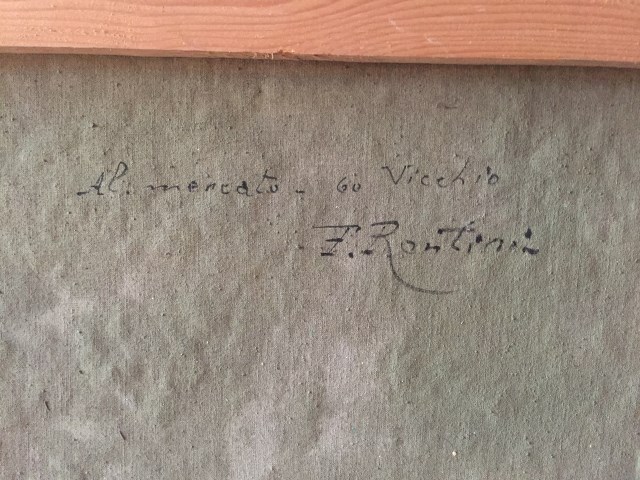 Al. mercato - 60 Vicchio
F. Rontini